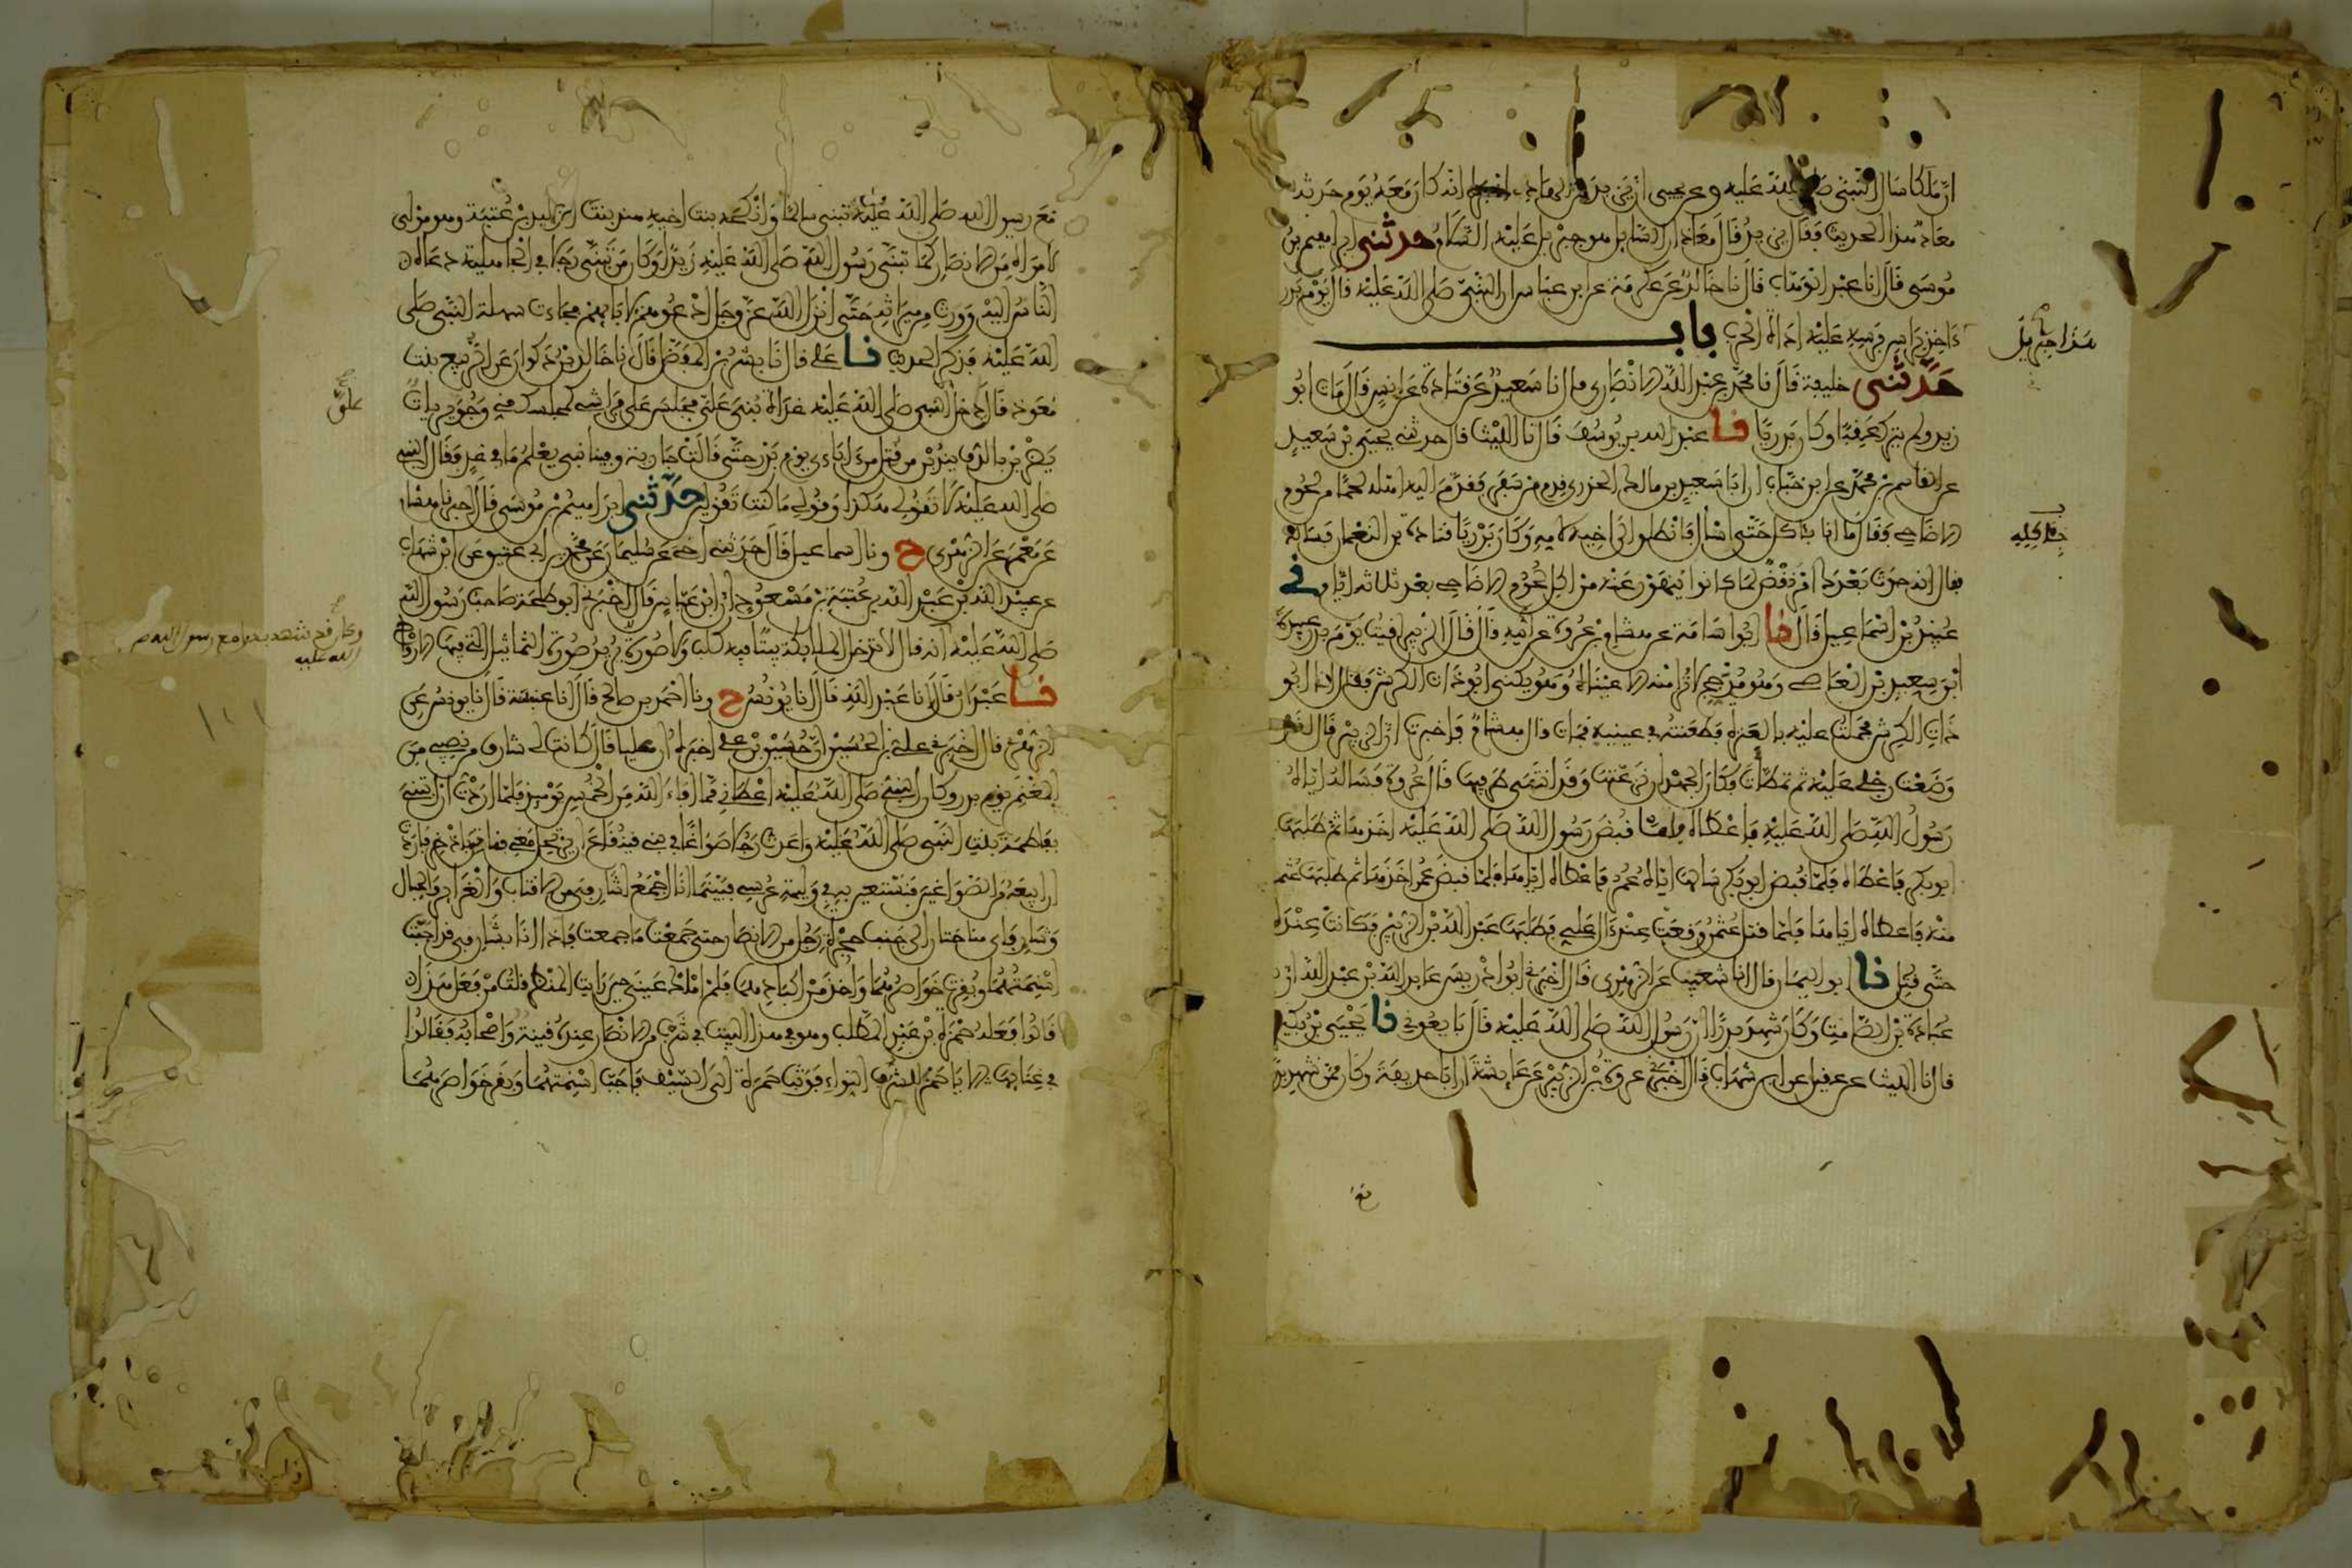 ان ملكا سال النبي صلى الله عليه وعن يحيى ان يزيد بن الهاد اخبره انه كان معه يوم حدثه
معاذ هذا الحديث فقال يزيد قال معاذ ان السايل هو جبريل عليه السلام حدثني ابراهيم بن
موسى قال انا عبد الوهاب قال نا خالد عن عكرمة عن ابن عباس ان النبي صلى الله عليه قال يوم بدر
هذا جبريل
ءاخذ براس فرسه عليه اداة الحرب باب
حدثني خليفة قال نا محمد بن عبد الله الانصاري قال نا سعيد عن قتادة عن انس قال مات ابو
زيد ولم يترك عقبا وكان بدريا نا عبد الله بن يوسف قال نا الليث قال حدثني يحيى بن سعيد
عن القاسم بن محمد عن ابن خباب ان ابا سعيد بن مالك الخدري قدم من سفر فقدم اليه اهله لحما من لحوم
الاضاحي فقال ما انا بئاكله حتى اسال فانطلق الى اخيه لامه وكان بدريا قتادة بن النعمان فساله
فقال انه حدث بعدك امر نقض لما كانوا ينهون عنه من اكل لحوم الاضاحي بعد ثلاثة ايام ني
عبيد بن اسماعيل قال نا ابو اسامة عن هشام بن عروة عن ابيه قال قال الزبير لقيت يوم بدر عبيدة
ابن سعيد بن العاصي وهو مدجج لا يرى منه الا عيناه وهو يكنى ابو ذات الكرش فقال انا ابو
ذات الكرش فحملت عليه بالعنزة فطعنته في عينيه فمات قال هشام فاخبرت ان الزبير قال لقد
وضعت رجلي عليه ثم تمطات فكان الجهد ان نزعتها وقد انثنى طرفها قال عروة فساله اياها
رسول الله صلى الله عليه فاعطاه فلما قبض رسول الله صلى الله عليه اخذها ثم طلبها
ابو بكر فاعطاه فلما قبض ابو بكر سالها اياه عمر فاعطاه اياها فلما قبض عمر اخذها ثم طلبها عثمن
منه فاعطاه اياها فلما قتل عثمن وقعت عند ءال علي فطلبها عبد الله بن الزبير فكانت عنده
حتى قتل نا ابو اليمان قال انا شعيب عن الزهري قال اخبرني ابو ادريس عايذ الله بن عبد الله ان
عبادة بن الصامت وكان شهد بدرا ان رسول الله صلى الله عليه قال بايعوني نا يحيى بن بكير
قال نا الليث عن عقيل عن ابن شهاب قال اخبرني عروة بن الزبير عن عايشة ان ابا حذيفة وكان ممن شهد بدرا
مع رسول الله صلى الله عليه تبنى سالما وانكحه بنت اخيه هند بنت الوليد بن عتبة وهو مولى
لامراة من الانصار كما تبنى رسول الله صلى الله عليه زيدا وكان من تبنى رجلا في الجاهلية دعاه
الناس اليه وورث من ميراثه حتى انزل الله عز وجل ادعوهم لابايهم فجاءت سهلة النبي صلى
الله عليه فذكر الحديث نا علي قال نا بشر بن المفضل قال نا خالد بن ذكوان عن الربيع بنت
معوذ قال دخل النبي صلى الله عليه غداة بني علي فجلس على فراشي كمجلسك مني وجويريات
علي
يضربن بالدف يندبن من قتل من ءاباءي يوم بدر حتى قالت جارية وفينا نبي يعلم ما في غد فقال النبي
صلى الله عليه لا تقولي هكذا وقولي ما كنت تقولين حدثني ابراهيم بن موسى قال اخبرنا هشام
عن معمر عن الزهري ح ونا اسماعيل قال حدثني اخي عن سليمان عن محمد بن ابي عتيق عن ابن شهاب
عن عبيد الله بن عبد الله بن عتبة بن مسعود ان ابن عباس قال اخبرني ابو طلحة صاحب رسول الله
وكان قد شهد بدرا مع رسول الله صلى
الله عليه
صلى الله عليه انه قال لا تدخل الملايكة بيتا فيه كلب ولا صورة يريد صورة التماثيل التي فيها الارواح
نا عبدان قال انا عبد الله قال انا يونس ح ونا احمد بن صالح قال نا عنبسة قال نا يونس عن
الزهري قال اخبرني علي بن الحسين ان حسين بن علي اخبره ان عليا قال كانت لي شارف من نصيبي من
المغنم يوم بدر وكان النبي صلى الله عليه اعطاني مما افاء الله من الخمس يوميذ فلما اردت ان ابتني
بفاطمة بنت النبي صلى الله عليه واعدت رجلا صواغا في بني قينقاع ان يرتحل معي فناتي باذخر فاردت
ان ابيعه من الصواغين فنستعين به في وليمة عرسي فبينما انا اجمع لشارفي من الاقتاب والغراير والحبال
وشارفاي مناختان الى جنب حجرة رجل من الانصار حتى جمعت ما جمعت فاذا انا بشارفي قد اجبت
اسنمتهما وبقرت خواصرهما واخذ من اكبادهما فلم املك عيني حين رايت المنظر قلت من فعل هذا
قالوا فعله حمزة بن عبد المطلب وهو في هذا البيت في شرب من الانصار عنده قينة واصحابه فقالوا
في غنايها الا يا حمز للشرف النواء فوثب حمزة الى السيف فاجب اسنمتهما وبقر خواصرهما